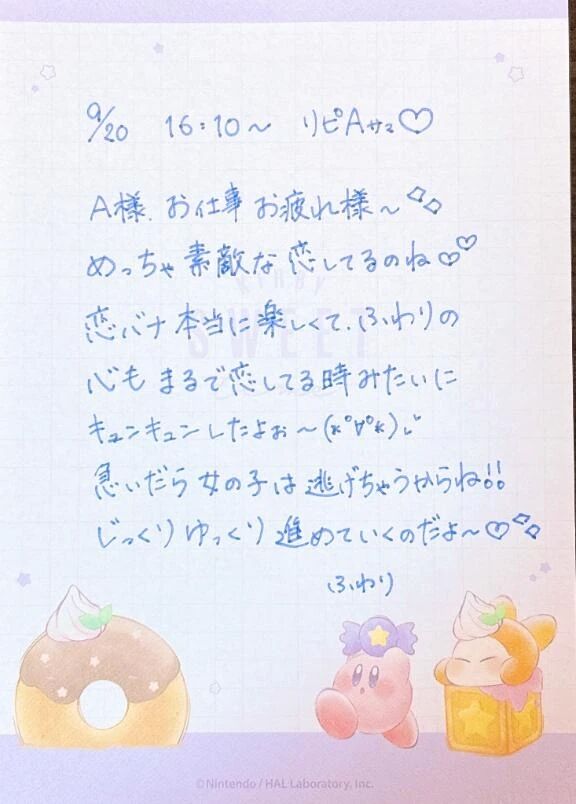 9/20 16:10～ リピAサマ♡
A様、お仕事お疲れ様～
めっちゃ素敵な恋してるのね♡♡
KIRBY
恋バナ本当に楽しくて、ふわりの
SWEET
心もまるで恋してる時みたいに
キュンキュンしたよぉ～(*°∀°*)
急いだら女の子は逃げちゃうからね!!
じっくりゆっくり進めていくのだよ～♡
ふわり
©Nintendo / HAL Laboratory, Inc.